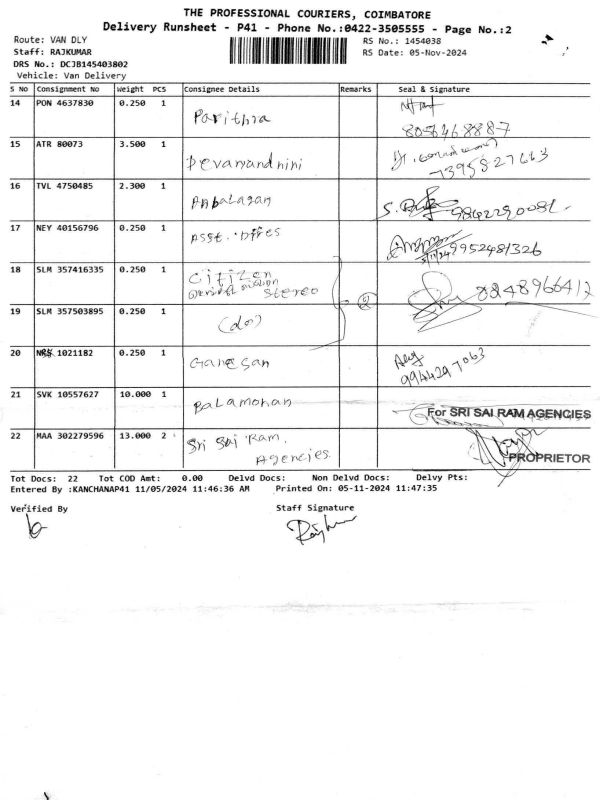 THE PROFESSIONAL COURIERS, COIMBATORE
Delivery Runsheet - P41 - Phone No.:0422-3505555 - Page No.:2
Route: VAN DLY
RS No.: 1454038
Staff: RAJKUMAR
RS Date: 05-Nov-2024
DRS No.: DCJB145403802
Vehicle: Van Delivery
S No Consignment No Weight PCS Consignee Details Remarks Seal & Signature
14 PON 4637830 0.250 1 Parithra
8056468887
15 ATR 80073 3.500 1 Devanandnini
7395827663
16 TVL 4750485 2.300 1 Anbalagan
9842290081
17 NEY 40156796 0.250 1 Asst.
9952481326
18 SLM 357416335 0.250 1 Citizen
Stereo
2
8248966417
19 SLM 357503895 0.250 1 (do)
20 1021182 0.250 1 Ganesan
9944297063
21 SVK 10557627 10.000 1 Balamohan
For SRI SAI RAM AGENCIES
22 MAA 302279596 13.000 2 Sri Sai Ram.
Agencies.
PROPRIETOR
Tot Docs: 22 Tot COD Amt: 0.00 Delvd Docs: Non Delvd Docs: Delvy Pts:
Entered By :KANCHANAP41 11/05/2024 11:46:36 AM Printed On: 05-11-2024 11:47:35
Verified By Staff Signature